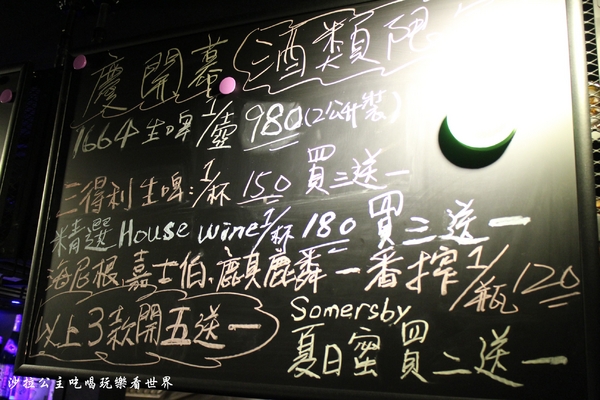 慶開幕 酒類限
1664生啤 1/壺 980(2公升裝)
三得利生啤:1/杯 150 買三送一
精選 House wine 1/杯 180 買三送一
海尼根.嘉士伯.麒麟一番搾 1/瓶 120
以上3款開五送一
Somersby
夏日蜜 買二送一
沙拉公主吃喝玩樂看世界